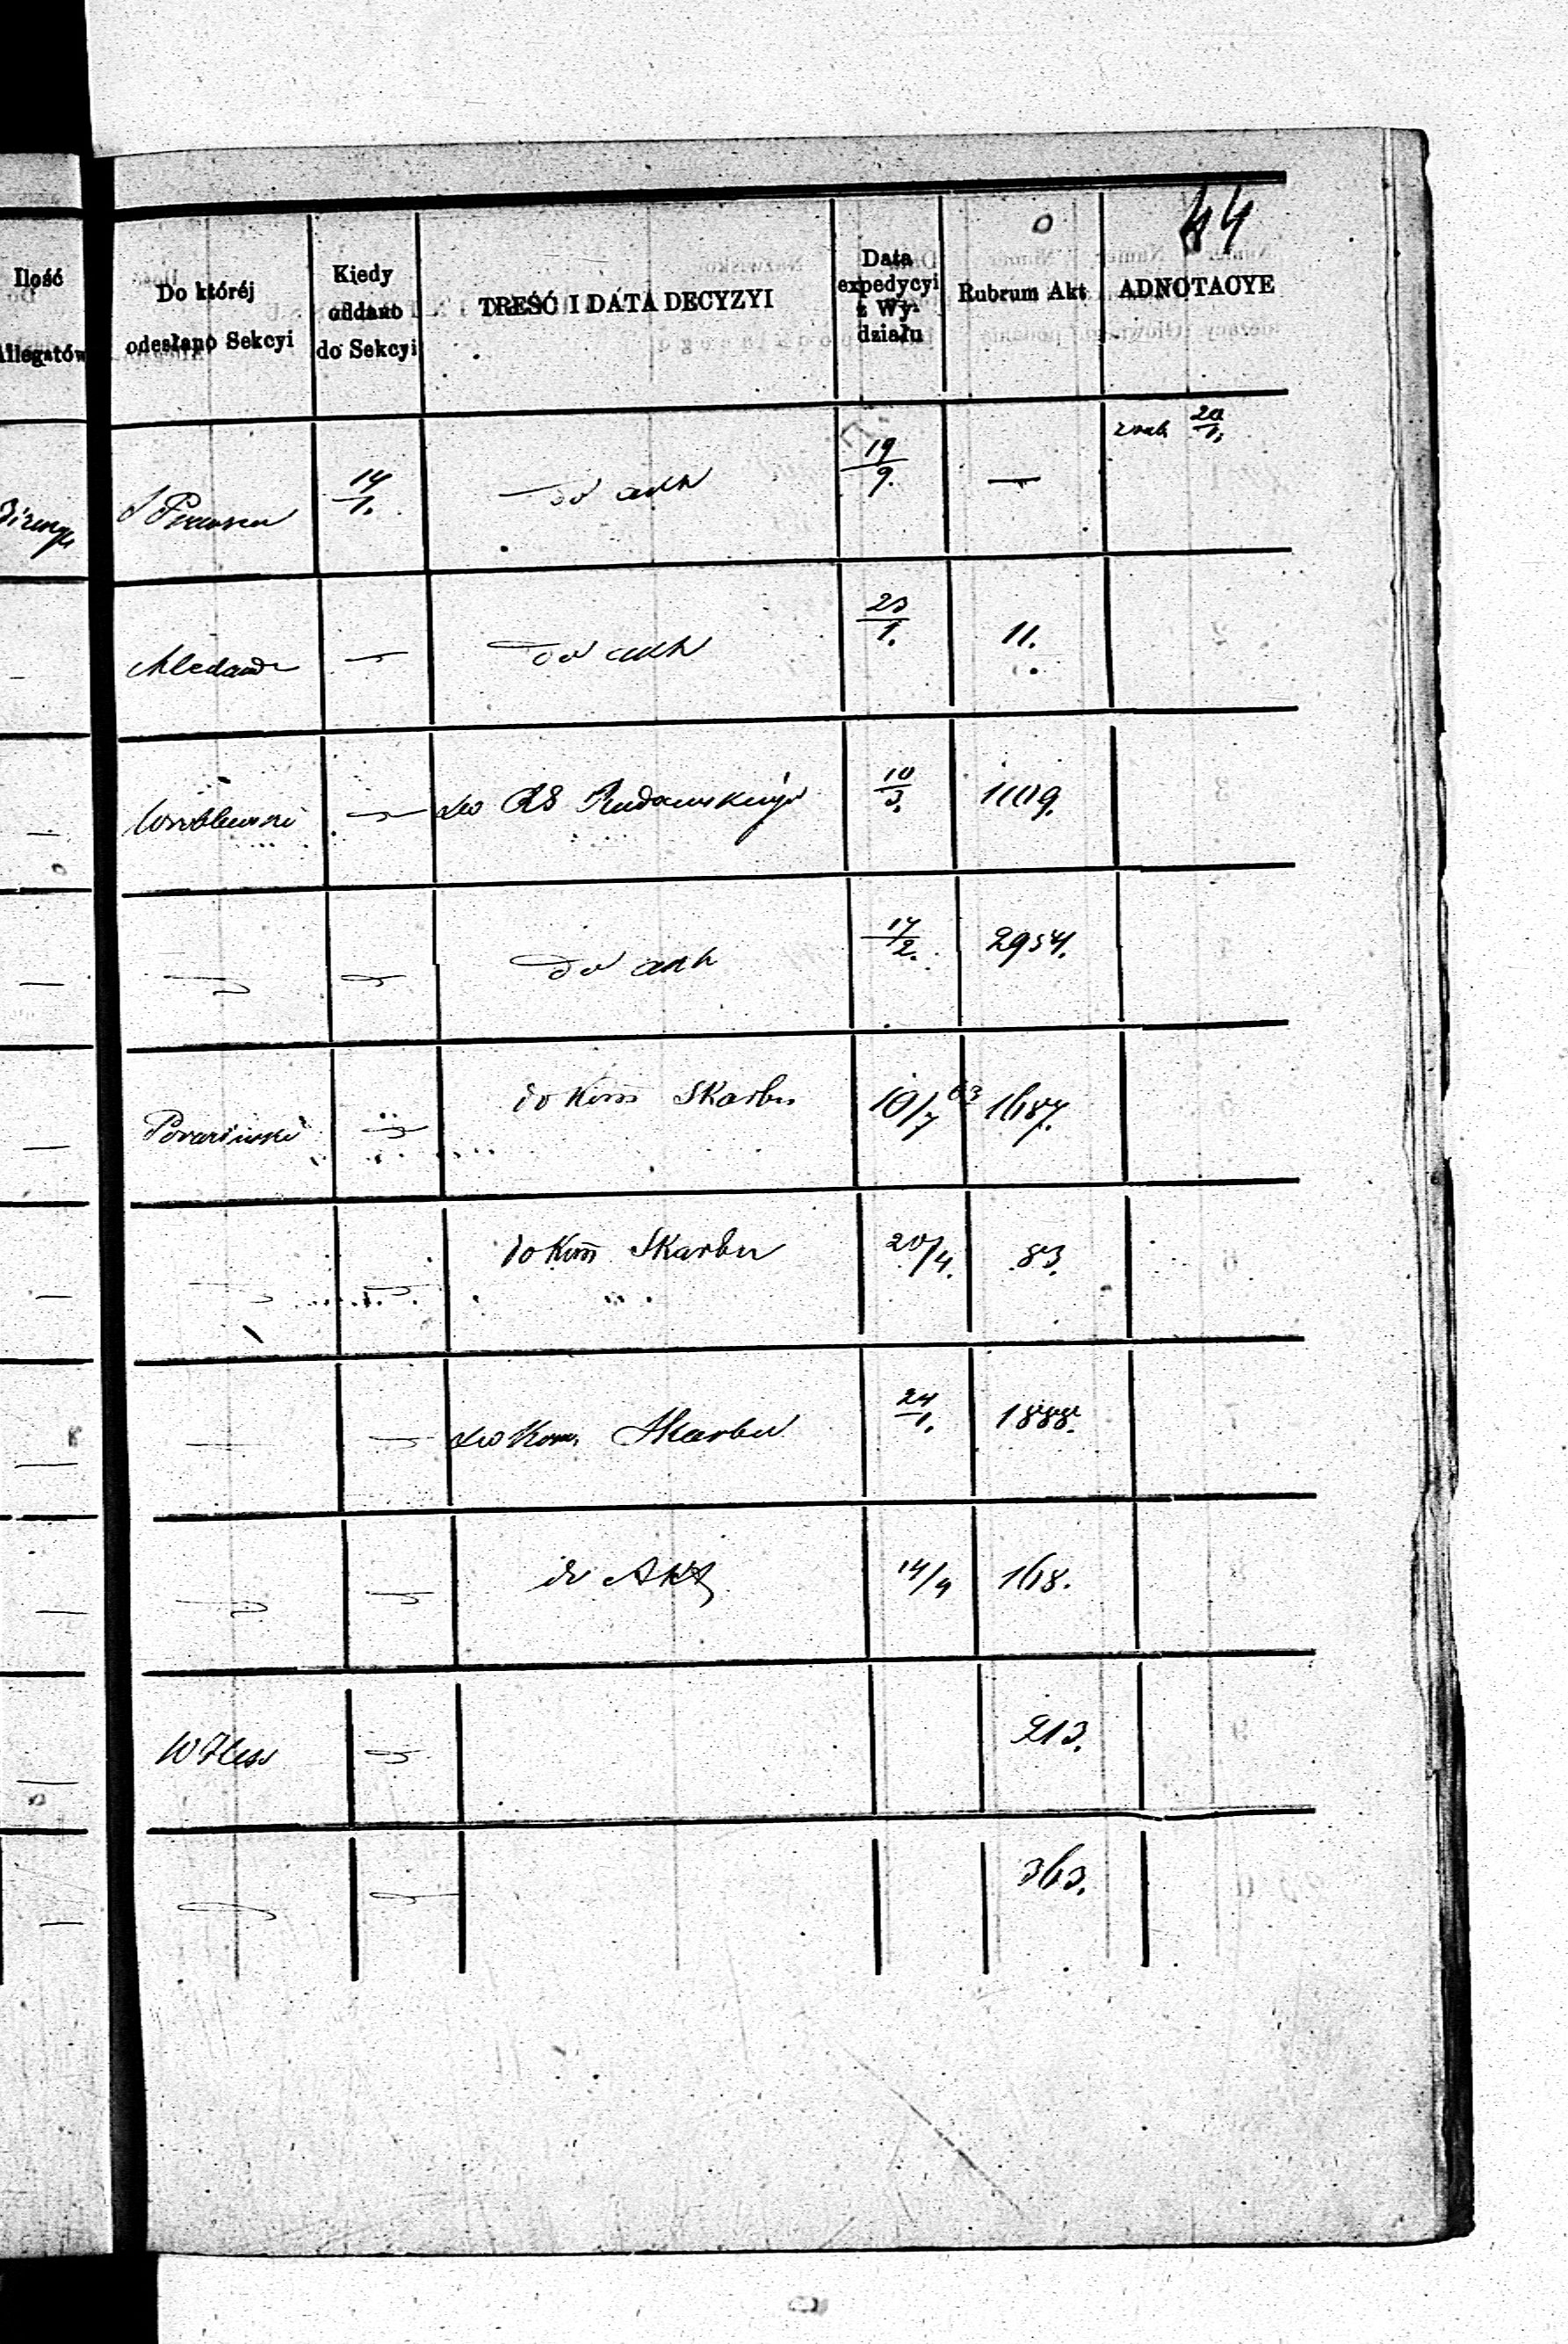 44
Ilość
Allegatów
Do któréj
odesłano Sekcyi
Kiedy
oddano
do Sekcyi
TREŚĆ I DATA DECYZYI
Data
expedycyi
z Wy-
działu
Rubrum Akt
ADNOTACYE
14/1. do akt 19/9. — 20/1.
— do akt 23/1. 11.
Wróblewski — do RS Radomskiego 10/3. 1109.
— — do akt 17/2. 2954.
— do Kom Skarbu 10/7 63 1687.
— — do Kom Skarbu 20/4. 83.
— — do Kom. Skarbu 24/1. 1888.
— — do Akt 14/4 168.
W Hess — 213.
— — 363.